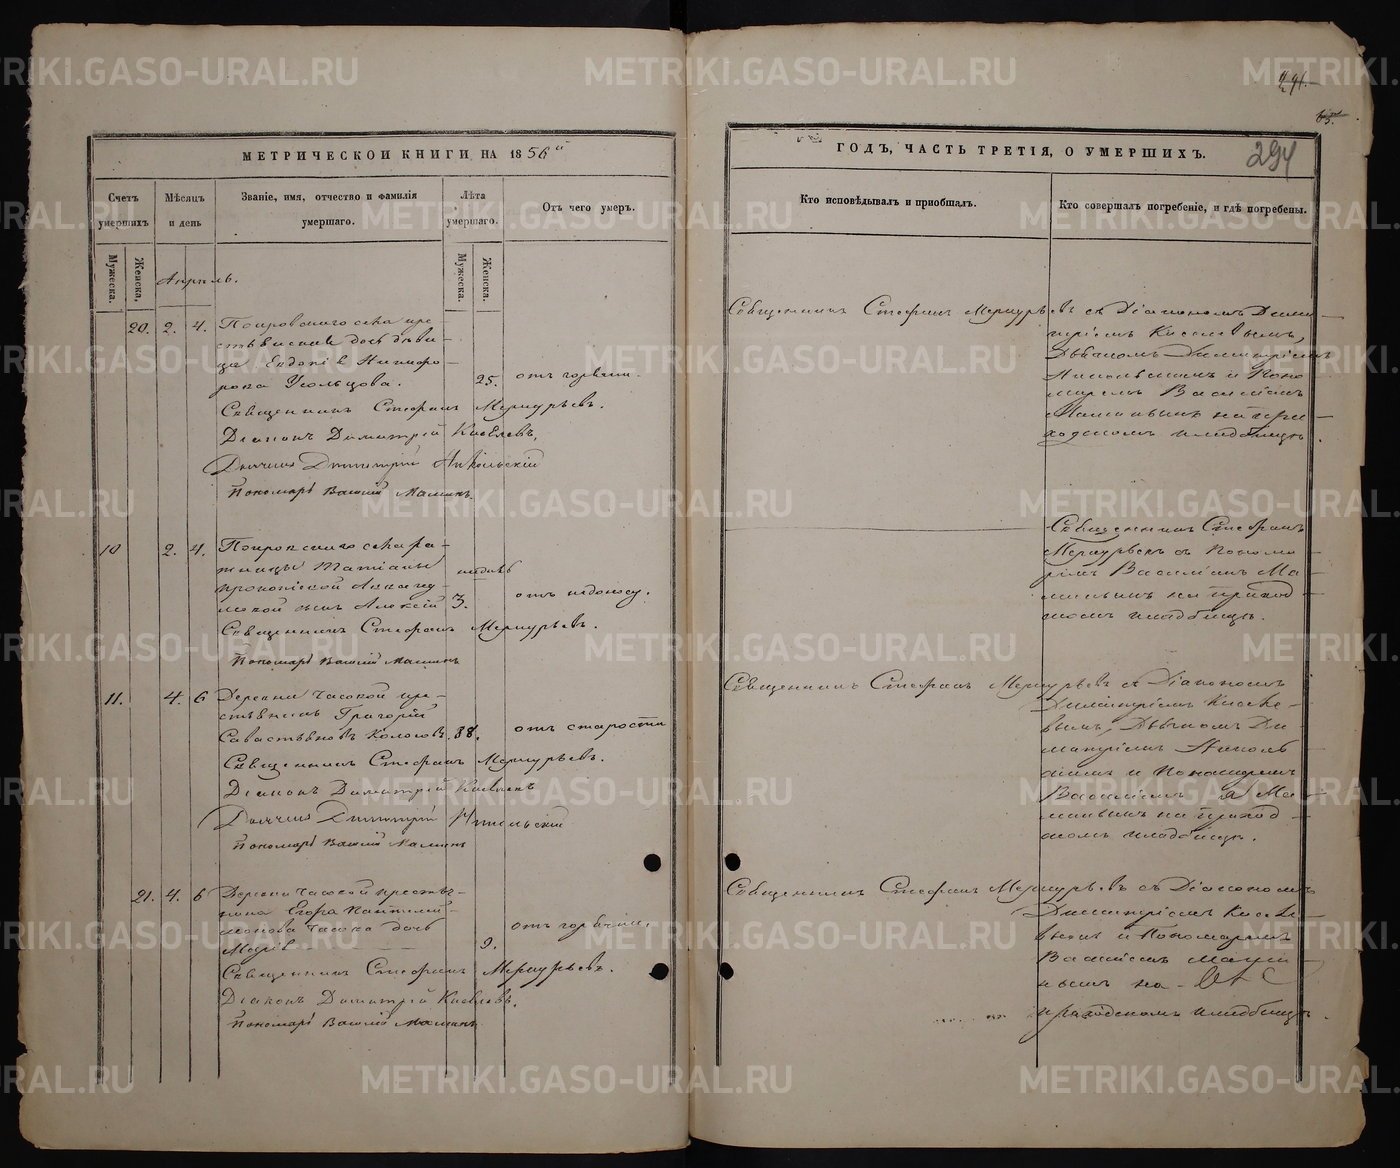 МЕТРИЧЕСКОЙ КНИГИ НА 1856й
ГОДЪ, ЧАСТЬ ТРЕТІЯ, О УМЕРШИХЪ.
294
Счетъ умершихъ
Мѣсяцъ и день
Званіе, имя, отчество и фамилія умершаго.
Лѣта умершаго.
Отъ чего умеръ.
Кто исповѣдывалъ и пріобщалъ.
Кто совершалъ погребеніе, и гдѣ погребены.
Мужеска.
Женска.
Мужеска.
Женска.
Апрѣль.
20. 2. 4. Покровскаго села кре-
стьянина дочь дѣви-
ца Евдокія Никифо-
рова Усольцова. 25. отъ горячки.
Священникъ Стефанъ Меркурьевъ.
Діаконъ Димитрій Киселевъ,
Дьячекъ Димитрій Никольскій
Пономарь Василій Маминъ.
Священникъ Стефанъ Меркурьевъ съ Діакономъ Дими-
тріемъ Киселевымъ,
Дьячкомъ Димитріемъ
Никольскимъ и Поно-
маремъ Василіемъ
Маминымъ на при-
ходскомъ кладбищѣ.
10 2. 4. Покровскаго села
Татіаны
Прокопіевой
сынъ Алексій 3. недѣль отъ поносу.
Священникъ Стефанъ Меркурьевъ.
Пономарь Василій Маминъ
Священникъ Стефанъ
Меркурьевъ съ Понома-
ремъ Василіемъ Ма-
минымъ на приход-
скомъ кладбищѣ.
11. 4. 6 Деревни Часовой кре-
стьянинъ Григорій
Савастьяновъ Колосовъ. 88. отъ старости
Священникъ Стефанъ Меркурьевъ.
Діаконъ Димитрій Киселевъ
Дьячекъ Димитрій Никольскій
Пономарь Василій Маминъ
Священникъ Стефанъ Меркурьевъ съ Діакономъ
Димитріемъ Киселе-
вымъ, Дьячкомъ Ди-
митріемъ Николь-
скимъ и Пономаремъ
Василіемъ Ма-
минымъ на приход-
скомъ кладбищѣ.
21. 4. 6 Деревни Часовой крестья-
нина Егора Пантелий-
монова Часова дочь
Марія 9. отъ горячки.
Священникъ Стефанъ Меркурьевъ.
Діаконъ Димитрій Киселевъ.
Пономарь Василій Маминъ.
Священникъ Стефанъ Меркурьевъ съ Діакономъ
Димитріемъ Киселе-
вымъ и Пономаремъ
Василіемъ Мами-
нымъ на
приходскомъ кладбищѣ.
METRIKI.GASO-URAL.RU